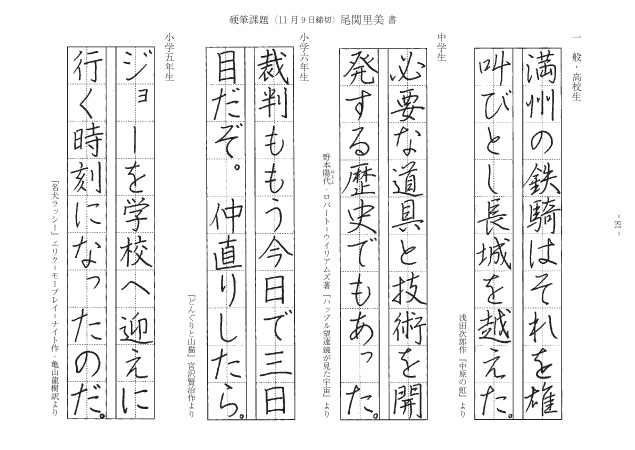 硬筆課題（11月9日締切）尾関里美 書
一般・高校生
満州の鉄騎はそれを雄
叫びとし長城を越えた。
浅田次郎作『中原の虹』より
中学生
必要な道具と技術を開
発する歴史でもあった。
野本陽代・ロバート＝ウイリアムズ著『ハッブル望遠鏡が見た宇宙』より
小学六年生
裁判ももう今日で三日
目だぞ。仲直りしたら。
『どんぐりと山猫』宮沢賢治作より
小学五年生
ジョーを学校へ迎えに
行く時刻になったのだ。
『名犬ラッシー』エリク＝モーブレイ＝ナイト作 亀山龍樹訳より